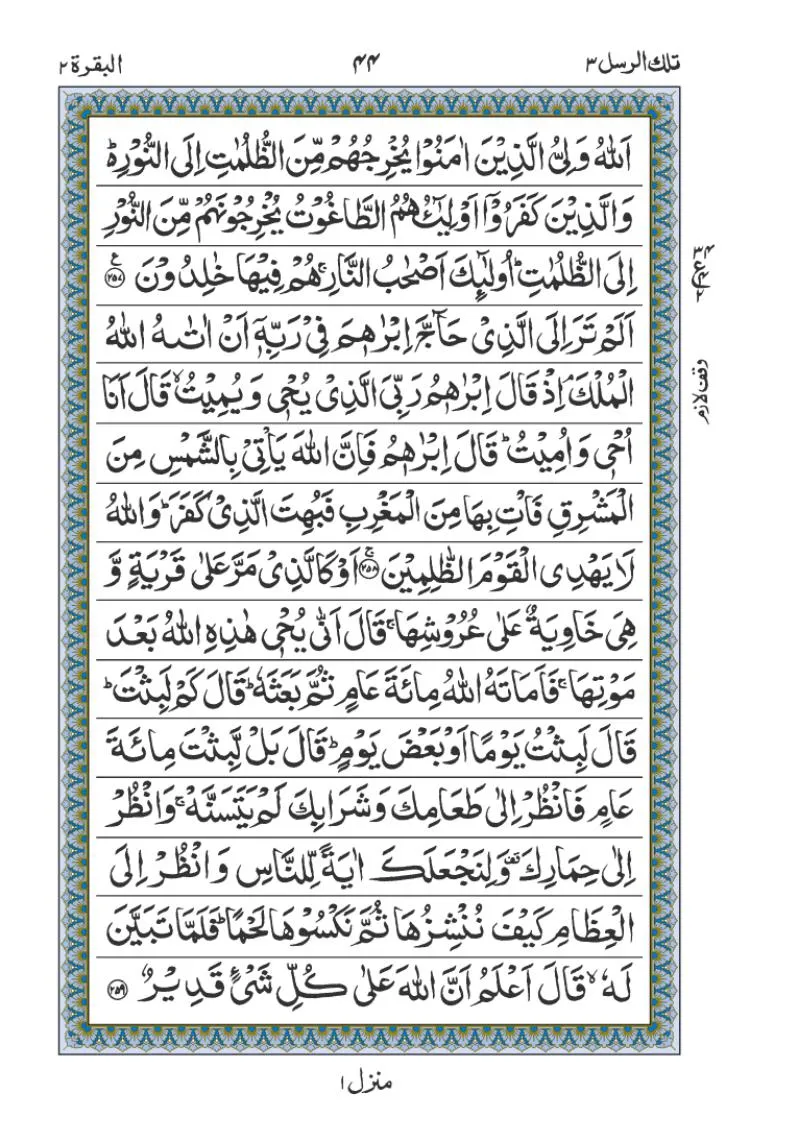 تلك الرسل ٣
٤٤
البقرة ٢
اَللّٰهُ وَلِیُّ الَّذِیْنَ اٰمَنُوْا یُخْرِجُهُمْ مِّنَ الظُّلُمٰتِ اِلَی النُّوْرِ۬ؕ
وَالَّذِیْنَ كَفَرُوْۤا اَوْلِیٰٓـُٔهُمُ الطَّاغُوْتُ یُخْرِجُوْنَهُمْ مِّنَ النُّوْرِ
اِلَی الظُّلُمٰتِ ؕ اُولٰٓىِٕكَ اَصْحٰبُ النَّارِ ۚ هُمْ فِیْهَا خٰلِدُوْنَ ﴿۲۵۷﴾ ع
اَلَمْ تَرَ اِلَی الَّذِیْ حَآجَّ اِبْرٰهٖمَ فِیْ رَبِّهٖۤ اَنْ اٰتٰىهُ اللّٰهُ
الْمُلْكَ ۘ اِذْ قَالَ اِبْرٰهٖمُ رَبِّیَ الَّذِیْ یُحْیٖ وَیُمِیْتُ ۙ قَالَ اَنَا
اُحْیٖ وَاُمِیْتُ ؕ قَالَ اِبْرٰهٖمُ فَاِنَّ اللّٰهَ یَاْتِیْ بِالشَّمْسِ مِنَ
الْمَشْرِقِ فَاْتِ بِهَا مِنَ الْمَغْرِبِ فَبُهِتَ الَّذِیْ كَفَرَ ؕ وَاللّٰهُ
لَا یَهْدِی الْقَوْمَ الظّٰلِمِیْنَ ﴿۲۵۸﴾ۚ اَوْ كَالَّذِیْ مَرَّ عَلٰی قَرْیَةٍ وَّ
هِیَ خَاوِیَةٌ عَلٰی عُرُوْشِهَا ۚ قَالَ اَنّٰی یُحْیٖ هٰذِهِ اللّٰهُ بَعْدَ
مَوْتِهَا ۚ فَاَمَاتَهُ اللّٰهُ مِائَةَ عَامٍ ثُمَّ بَعَثَهٗ ؕ قَالَ كَمْ لَبِثْتَ ؕ
قَالَ لَبِثْتُ یَوْمًا اَوْ بَعْضَ یَوْمٍ ؕ قَالَ بَلْ لَّبِثْتَ مِائَةَ
عَامٍ فَانْظُرْ اِلٰی طَعَامِكَ وَشَرَابِكَ لَمْ یَتَسَنَّهْ ۚ وَانْظُرْ
اِلٰی حِمَارِكَ ۫ وَلِنَجْعَلَكَ اٰیَةً لِّلنَّاسِ وَانْظُرْ اِلَی
الْعِظَامِ كَیْفَ نُنْشِزُهَا ثُمَّ نَكْسُوْهَا لَحْمًا ؕ فَلَمَّا تَبَیَّنَ
لَهٗ ۙ قَالَ اَعْلَمُ اَنَّ اللّٰهَ عَلٰی كُلِّ شَیْءٍ قَدِیْرٌ ﴿۲۵۹﴾
وقف لازم
منزل ١